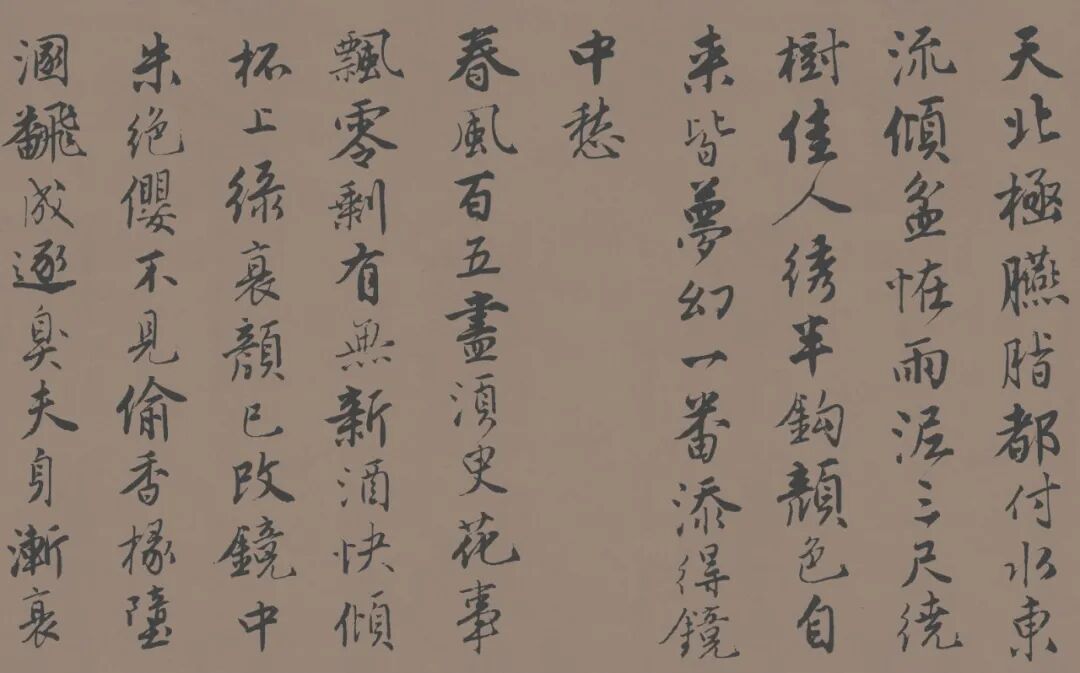 天北極臙脂都付水東
流傾盆怪雨泥三尺繞
樹佳人綉半鈎顏色自
来皆夢幻一番添得鏡
中愁
春風百五盡須臾花事
飄零剩有無新酒快傾
杯上綠衰顏已改鏡中
朱絕纓不見偷香掾墮
溷翻成逐臭夫身漸衰